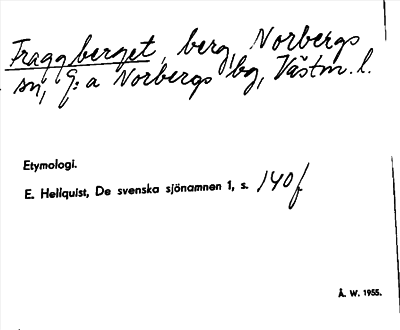 Fraggberget, berg, Norbergs
sn, G:a Norbergs bg, Västm. l.
Etymologi.
E. Hellquist, De svenska sjönamnen 1, s. 140 f
Å. W. 1955.